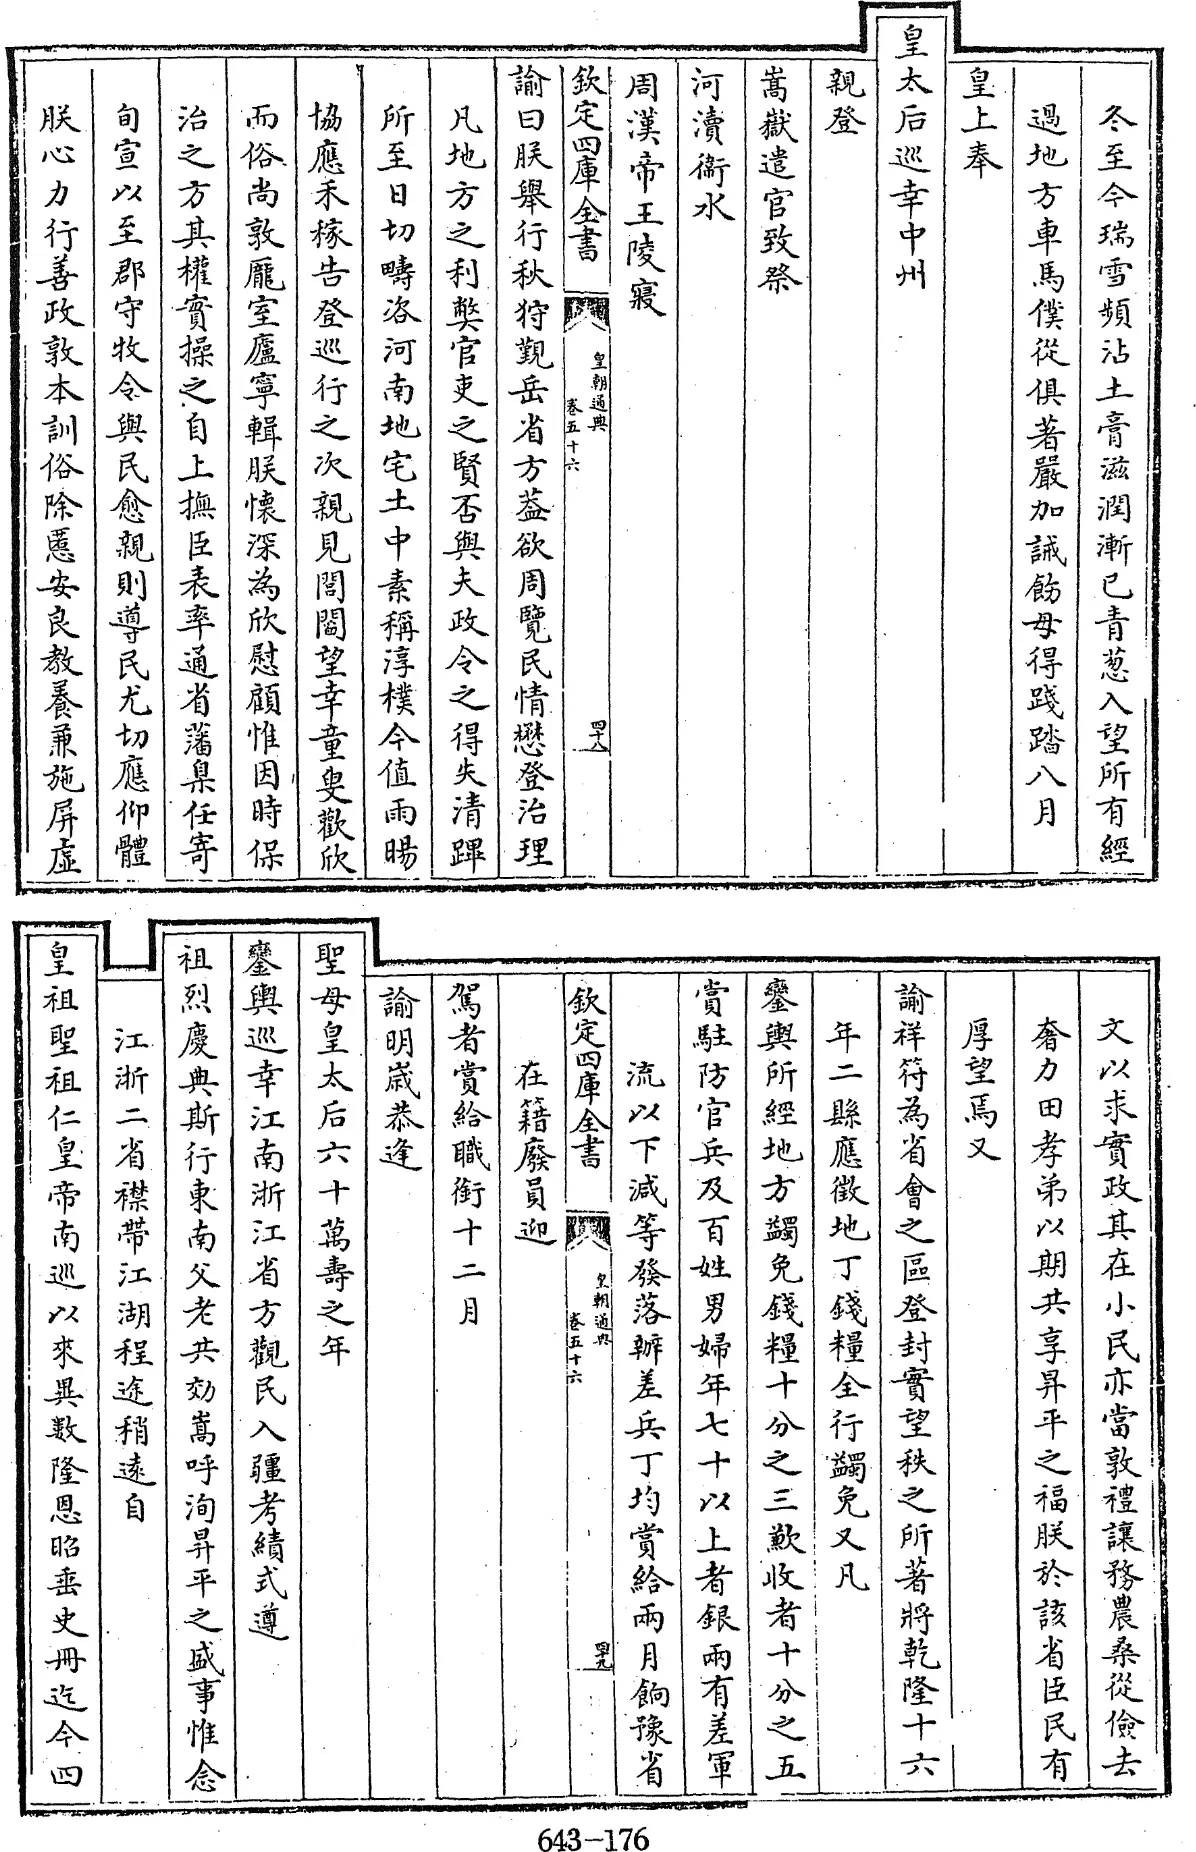 冬至今瑞雪頻沾土膏滋潤漸已青葱入望所有經
過地方車馬僕從俱著嚴加誡飭毋得踐踏八月
皇上奉
皇太后巡幸中州
親登
嵩嶽遣官致祭
河瀆衞水
周漢帝王陵寢
欽定四庫全書
皇朝通典
卷五十六
四十八
諭曰朕舉行秋狩覲岳省方葢欲周覽民情懋登治理
凡地方之利弊官吏之賢否與夫政令之得失清蹕
所至日切疇洛河南地宅土中素稱淳樸今值雨暘
協應禾稼告登巡行之次親見閭閻望幸童叟歡欣
而俗尚敦龎室廬寧輯朕懷深為欣慰顧惟因時保
治之方其權實操之自上撫臣表率通省藩臬任寄
旬宣以至郡守牧令與民愈親則導民尤切應仰體
朕心力行善政敦本訓俗除慝安良教養兼施屏虛
文以求實政其在小民亦當敦禮讓務農桑從儉去
奢力田孝弟以期共享昇平之福朕於該省臣民有
厚望焉又
諭祥符為省會之區登封實望秩之所著將乾隆十六
年二縣應徵地丁錢糧全行蠲免又凡
鑾輿所經地方蠲免錢糧十分之三歉收者十分之五
賞駐防官兵及百姓男婦年七十以上者銀兩有差軍
流以下減等發落辦差兵丁均賞給兩月餉豫省
欽定四庫全書
皇朝通典
卷五十六
四十九
在籍廢員迎
駕者賞給職銜十二月
諭明歲恭逢
聖母皇太后六十萬壽之年
鑾輿巡幸江南浙江省方觀民入疆考績式遵
祖烈慶典斯行東南父老共効嵩呼洵昇平之盛事惟念
江浙二省襟帶江湖程途稍遠自
皇祖聖祖仁皇帝南巡以來異數隆恩昭垂史冊迄今四
643-176